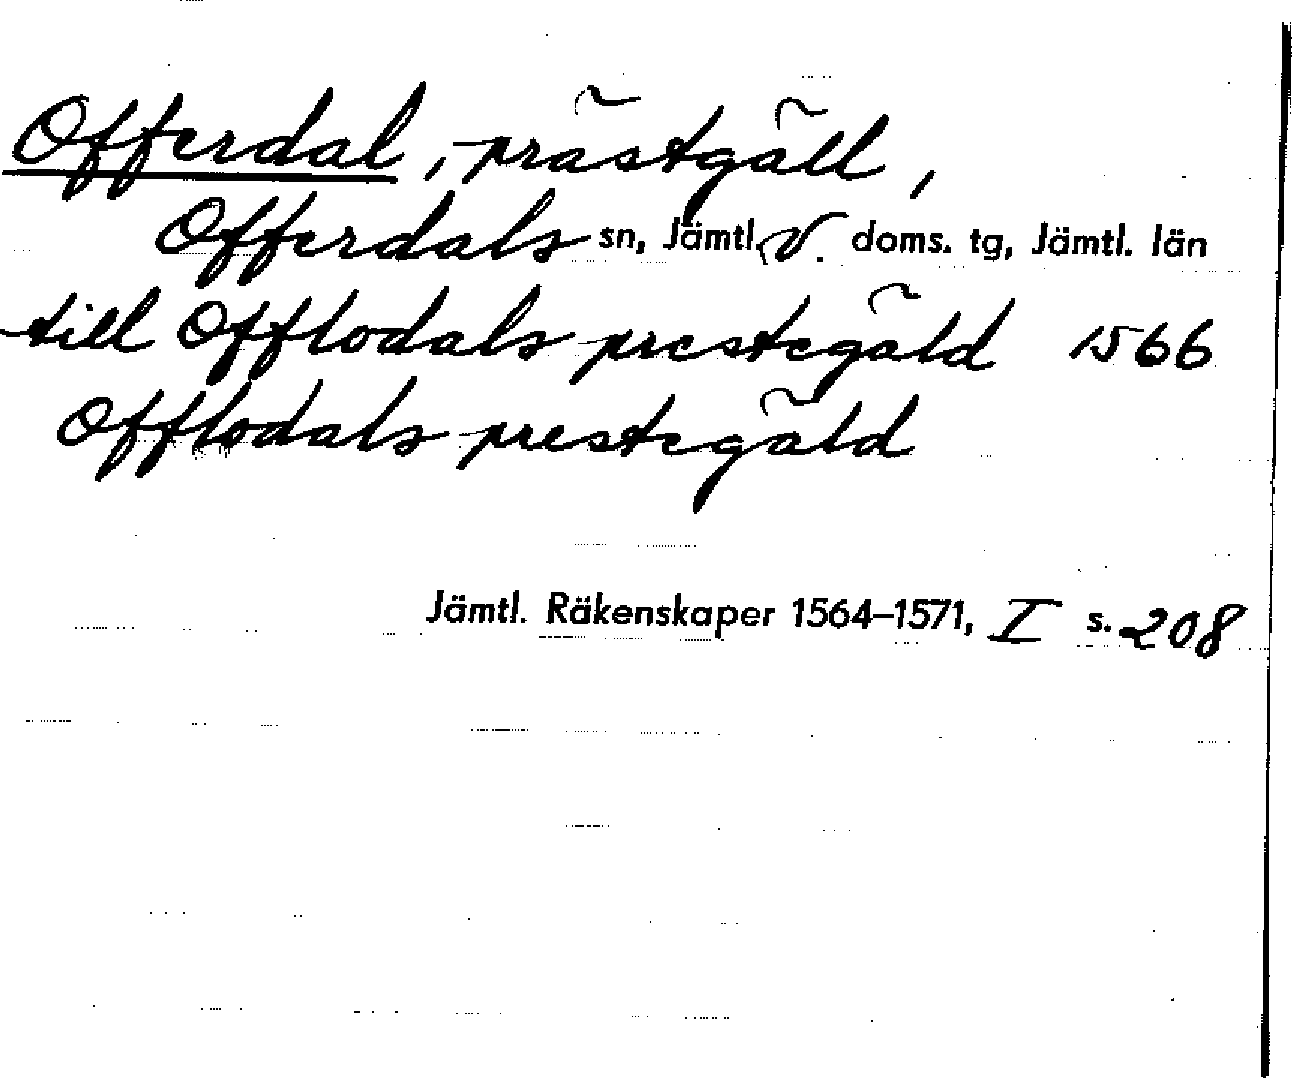 Offerdal, prästgäll,
Offerdals sn, Jämtl. V. doms. tg, Jämtl. län
till Offlodals prestegäld 1566
Offlodals prestegäld
Jämtl. Räkenskaper 1564–1571, I s. 208